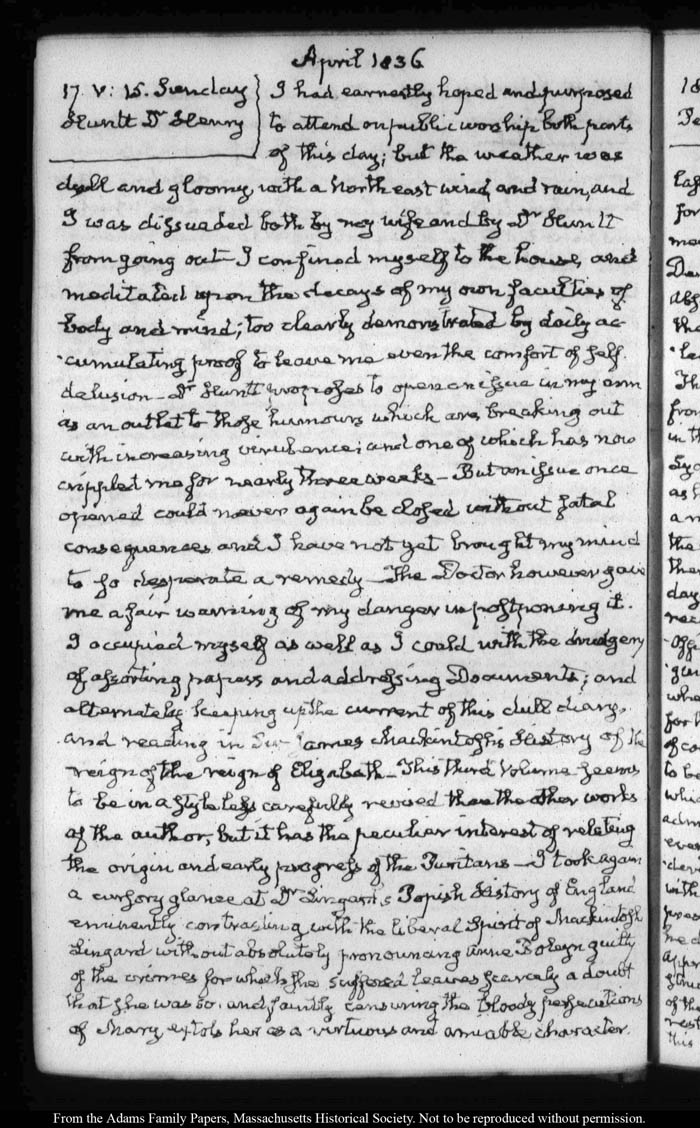 April 1836
17. V: 15. Sunday
Huntt Dr Henry
I had earnestly hoped and purposed
to attend on public worship both parts
of this day; but the weather was
dull and gloomy with a North east wind, and rain, and
I was dissuaded both by my wife and by Dr Huntt
from going out. I confined myself to the house, and
meditated upon the decays of my own faculties of
body and mind; too clearly demonstrated by daily ac-
-cumulating proof to leave me even the comfort of self.
delusion_ Dr Huntt proposes to open an issue in my arm
as an outlet to those humours which are breaking out
with increasing virulence; and one of which has now
crippled me for nearly three weeks_ But an issue once
opened could never again be closed without fatal
consequences and I have not yet brought my mind
to so desperate a remedy_ The Doctor however gave
me a fair warning of my danger in postponing it.
I occupied myself as well as I could with the drudgery
of assorting papers and addressing Documents; and
alternately keeping up the current of this dull diary,
and reading in Sir James Mackintosh's History of the
reign of the reign of Elizabeth_ This third Volume seems
to be in a style less carefully revised than the other works
of the author, but it has the peculiar interest of relating
the origin and early progress of the Puritans_ I took again
a cursory glance at Dr Lingard's Popish History of England
eminently contrasting with the liberal Spirit of Mackintosh
Lingard without absolutely pronouncing Anne Boleyn guilty
of the crimes for which she suffered leaves scarcely a doubt
that she was so. and faintly censuring the bloody persecutions
of Mary, extols her as a virtuous and amiable character.
From the Adams Family Papers, Massachusetts Historical Society. Not to be reproduced without permission.